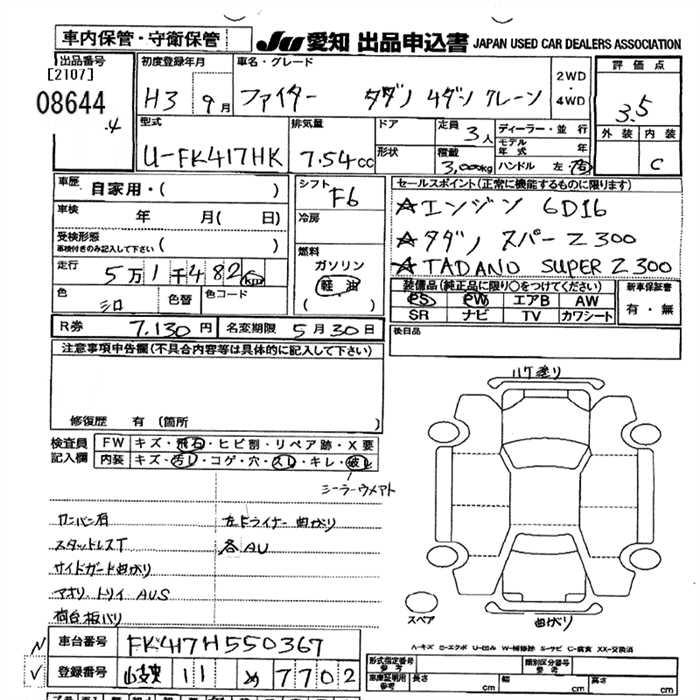 車内保管・守衛保管 JU 愛知 出品申込書 JAPAN USED CAR DEALERS ASSOCIATION
出品番号 初度登録年月 車名・グレード 2WD・4WD 評価点
[2107]
08644 H3 9月 ファイター タダノ 4ダン クレーン 3.5
.4
型式 排気量 ドア 定員 3人 ディーラー・並行 外装 内装
モデル年式
U-FK417HK 7.54cc 形状 積載 3,000kg ハンドル 左・右 C
車歴 自家用・( ) シフト F6 セールスポイント(正常に機能するものに限ります)
車検 年 月( 日) 冷房 ☆エンジン 6D16
受検形態 車検付きのみ記入して下さい ( ) ☆タダノ スパーZ300
燃料 ★TADANO SUPER Z300
走行 5万1千482km ガソリン 装備品(純正品に限り○をつけてください) 新車保証書
色 シロ 色替 色コード 軽油 PS PW エアB AW 有・無
SR ナビ TV カワシート
R券 7.130円 名変期限 5月30日 後日品
注意事項申告欄(不具合内容等は具体的に記入して下さい)
ハケ塗り
修復歴 有(箇所 )
検査員記入欄 FW キズ・飛石・ヒビ割・リペア跡・X要
内装 キズ・汚レ・コゲ・穴・スレ・キレ・破レ
シーラーウメアト
ワンバン有 左ドライナー曲がり
スタッドレスT 各AU
サイドガード曲がり
アオリ、トリイ AUS
荷台板バリ
スペア 曲がり
A-キズ E-エクボ U-凹み W-補修跡 S-サビ C-腐食 XX-交換済
車台番号 FK417H550367
登録番号 11 め 7702
形式指定番号 参考 類別区分番号 参考
車庫証明用 参考 長さ cm 幅 cm 高さ cm